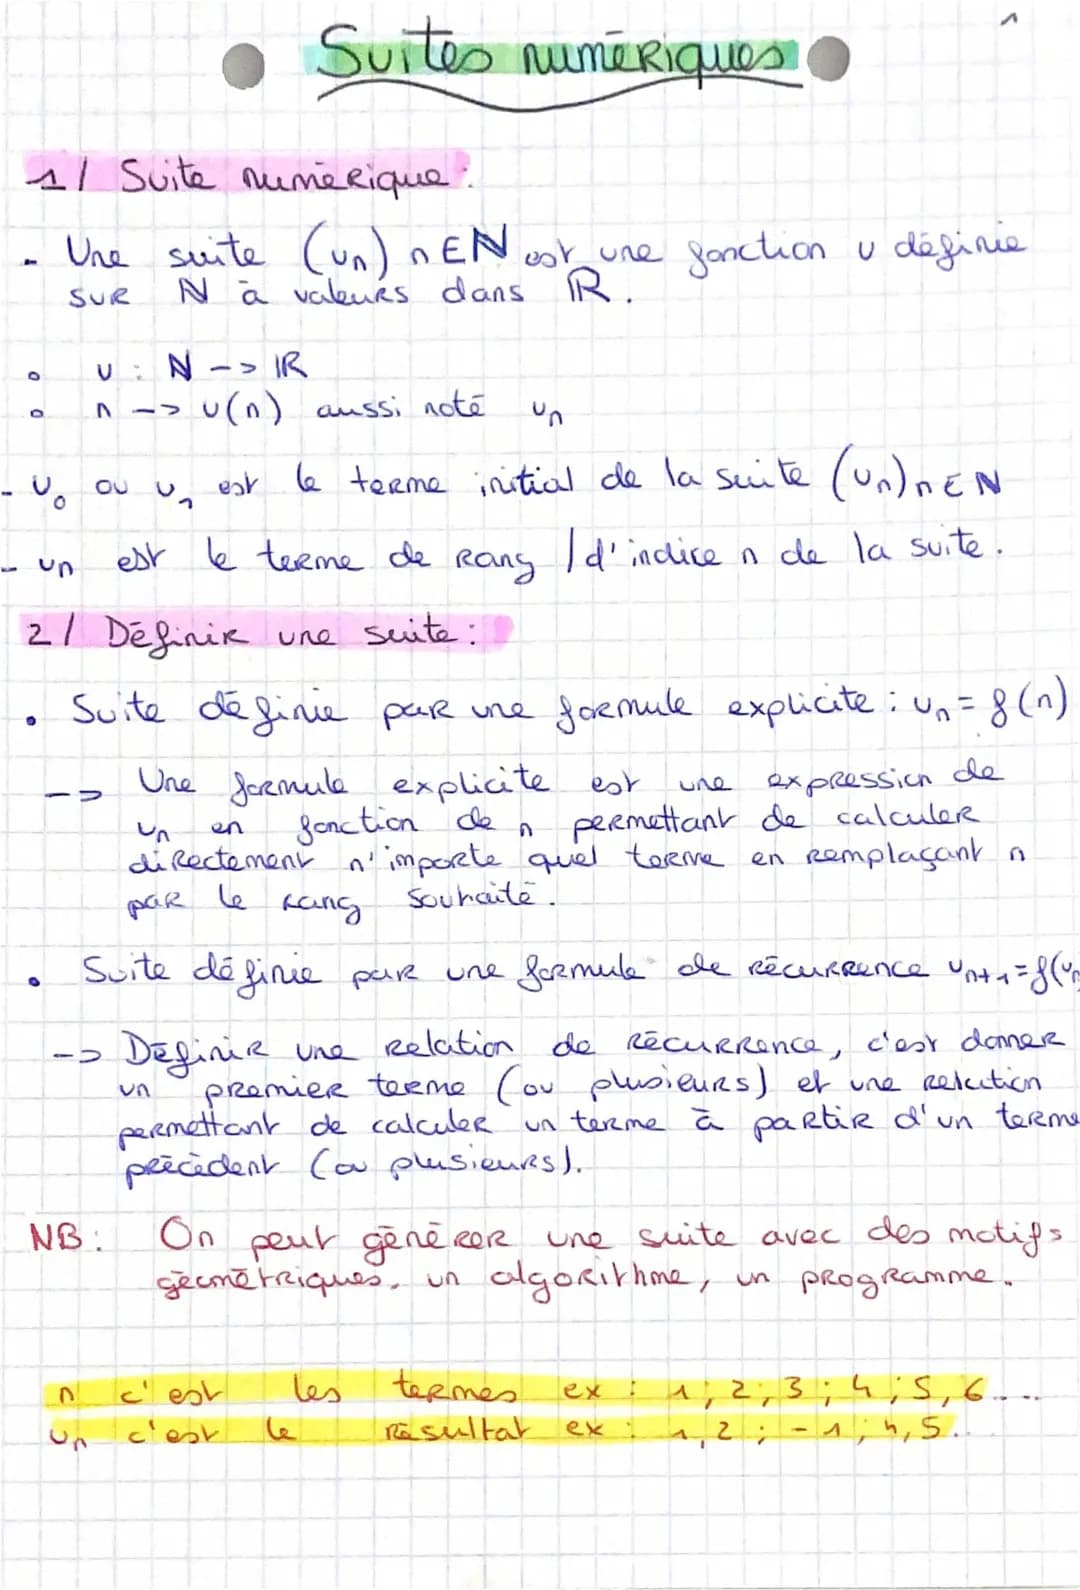 Suites numériques
1/ Suite numérique :
- Une suite (un) n ∈ ℕ est une fonction u définie
sur ℕ à valeurs dans ℝ.
∘ u : ℕ --> ℝ
∘ n --> u(n) aussi noté un
- u₀ ou u₁ est le terme initial de la suite (un) n ∈ ℕ
- un est le terme de rang / d'indice n de la suite.
2/ Définir une suite :
• Suite définie par une formule explicite : un = f(n)
--> Une formule explicite est une expression de
un en fonction de n permettant de calculer
directement n'importe quel terme en remplaçant n
par le rang souhaité.
• Suite définie par une formule de récurrence un+1 = f(un
--> Définir une relation de récurrence, c'est donner
un premier terme (ou plusieurs) et une relation
permettant de calculer un terme à partir d'un terme
précédent (ou plusieurs).
NB : On peut générer une suite avec des motifs
géométriques, un algorithme, un programme.
n c'est les termes ex : 1 ; 2 ; 3 ; 4 ; 5, 6.. ..
un c'est le résultat ex : 1,2 ; -1 ; 4,5..